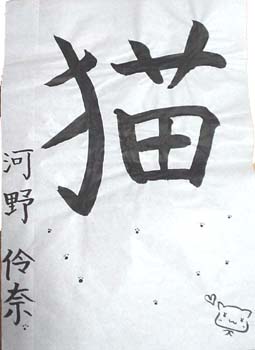 猫
河野 伶奈